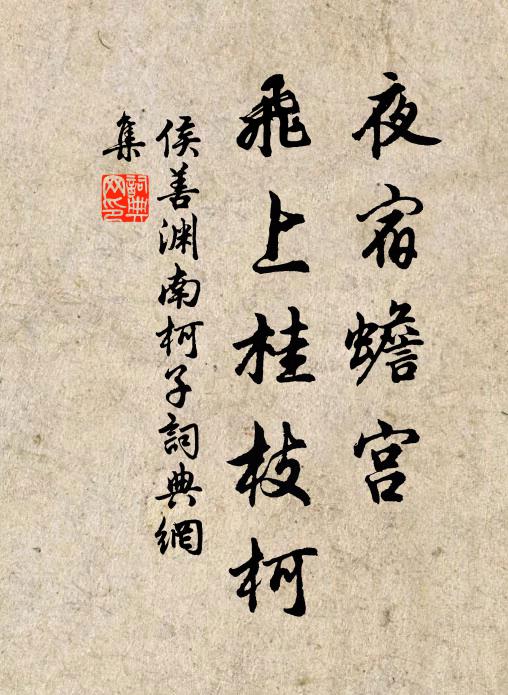 夜宿蟾宫
飛上桂枝柯
侯善渊南柯子詞典網
集
詞典
网印